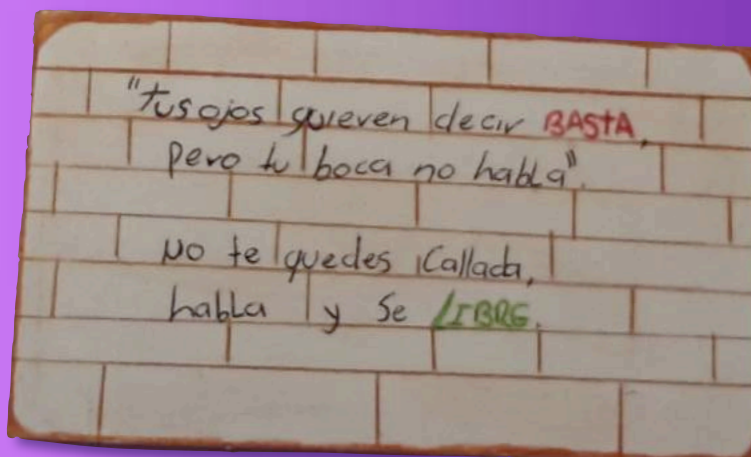 "Tus ojos quieren decir BASTA,
pero tu boca no habla".
No te quedes callada,
habla y se LIBRE.